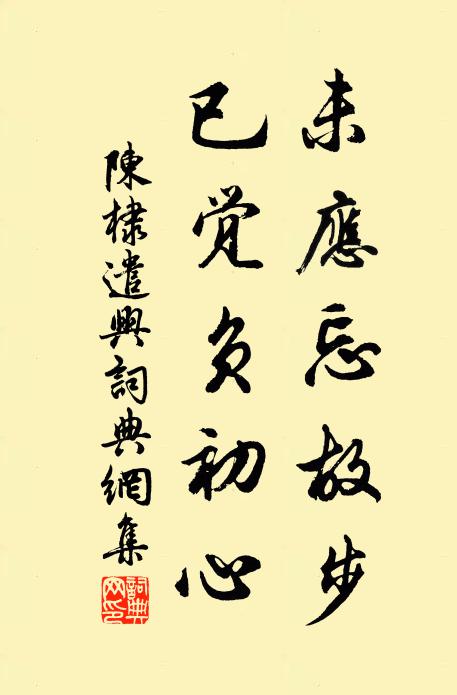 未應忘故步
已覺負初心
陳棣遣興詞典網集
詞典網印